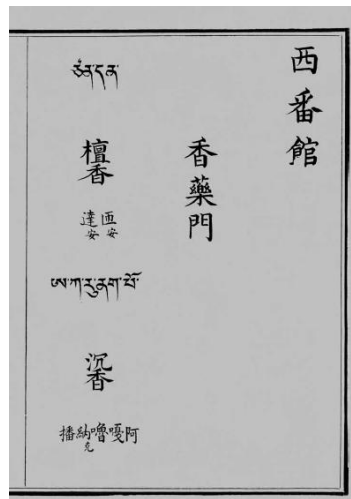 西番館
香藥門
ཙན་དན་
檀香
匝安達安
ཨ་ཀ་རུ་ནག་པོ་
沉香
阿嘎嚕納克播